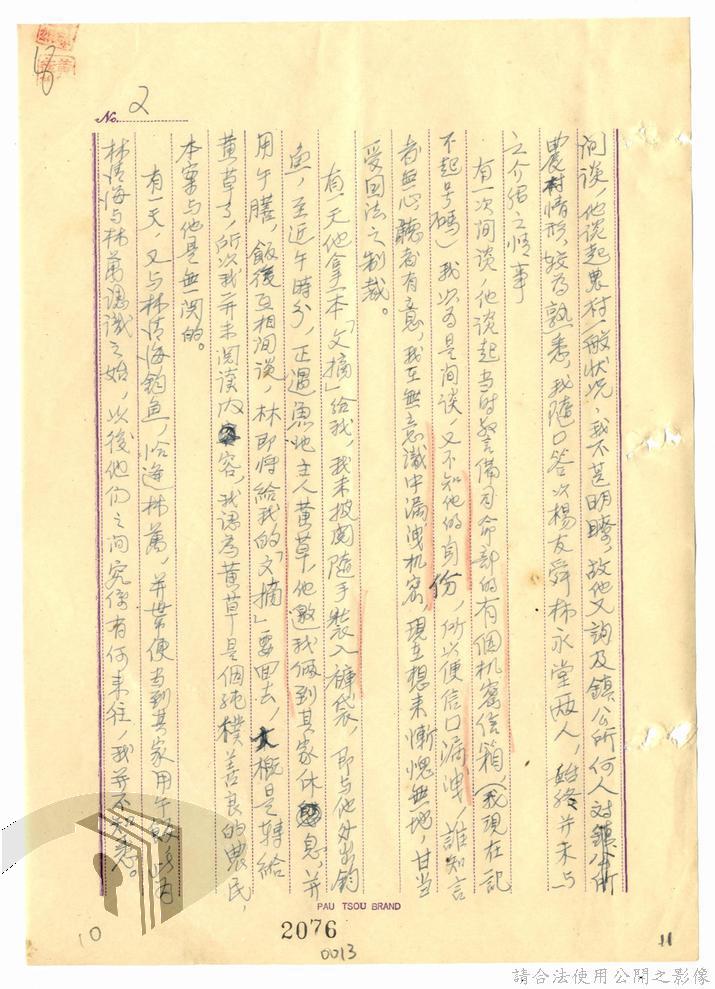 No. 2
间谈，他谈起農村一般状况，我不甚明瞭，故他又詢及鎮公所何人对鎮公所
農村情形，较为熟悉，我隨口答次楊友舜林永堂两人，始終并未与
之介绍之情事
有一次间谈，他谈起当时警備司令部的有個机密信箱，（我現在記
不起号碼）我以为是间谈，又不知他的身份，所以便信口漏洩，誰知言
者無心聽者有意，我在無意識中漏洩机密，現在想来慚愧無地，甘当
受国法之制裁。
有一天他拿一本「文摘」給我，我未披閱隨手裝入褲袋，即与他外出釣
魚，至近午時分，正遇魚池主人黄草，他邀我倆到其家休息，并
用午膳，飯後互相间谈，林即將給我的「文摘」要回去，大概是轉給
黄草了，所次我并未閱读内容，我認為黄草是個純樸善良的農民，
本案与他是無関的。
有一天，又与林清海釣魚，恰逢林萬，并帶便当到其家用午飯，此為
林清海与林萬認識之始，以後他们之间究係有何来往，我并不知悉。
PAU TSOU BRAND
2076
0013
10
11
請合法使用公開之影像